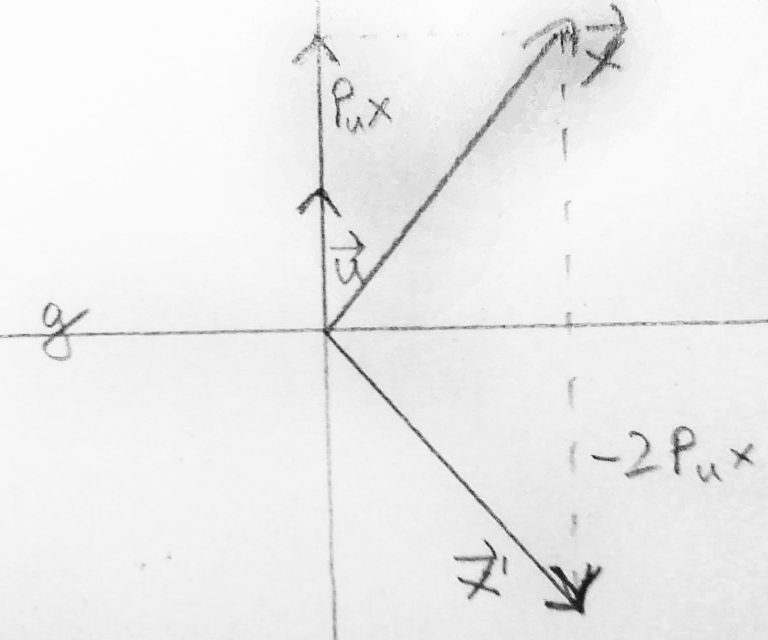 x⃗
Pᵤx
u⃗
g
-2Pᵤx
x⃗'